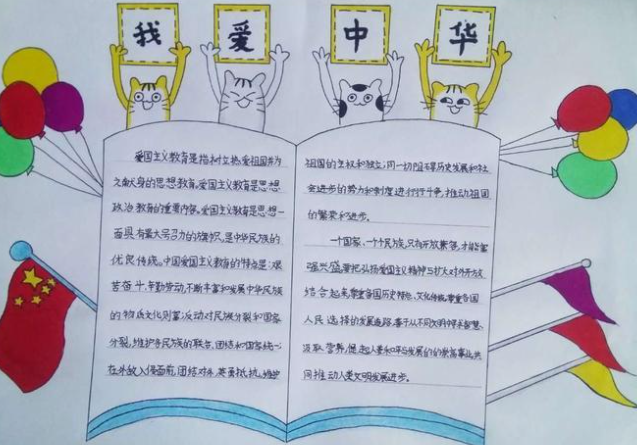 我爱中华
爱国主义教育是指树立热爱祖国并为
之献身的思想教育。爱国主义教育是思想
政治教育的重要内容。爱国主义教育是思想一
面具有最大号召力的旗帜,是中华民族的
优良传统。中国爱国主义教育的特点是:艰
苦奋斗,辛勤劳动,不断丰富和发展中华民族
的物质文化财富;反动对民族分裂和国家
分裂,维护各民族的联合、团结和国家统一;
在外敌入侵面前,团结对外,英勇抵抗,维护
祖国的主权和独立;同一切阻碍历史发展和社
会进步的势力和制度进行斗争,推动祖国
的繁荣和进步。
一个国家、一个民族,只有开放兼容,才能富
强兴盛。要把弘扬爱国主义精神与扩大对外开放
结合起来,尊重各国历史特点、文化传统,尊重各国
人民选择的发展道路,善于从不同文明中寻求智慧、
汲取营养,促进人类和平与发展的崇高事业,共
同推动人类文明发展进步。